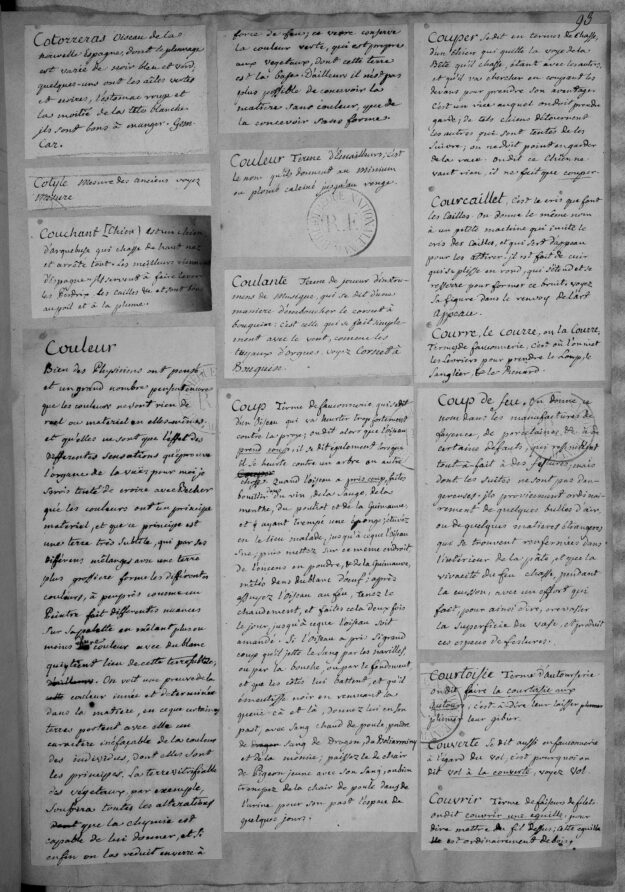 95
Cotorreras Oiseau de la
nouvelle Espagne, dont le plumage
est varié de noir blanc et verd,
quelques-uns ont les aîles vertes
et noires, l'estomac rouge et
la moitié de la tête blanche
ils sont bons à manger. Gem.
Car.
Cotyle Mesure des anciens voyez
Mesure
Couchant [Chien] est un chien
d'arquebuse qui chasse de haut nez
et arrête tout. Les meilleurs viennent
d'Espagne. Ils servent à faire lever
les Perdrix. Les cailles &c et sont bons
au poil et à la plume.
Couleur
Bien des Physiciens ont pensé,
et un grand nombre pensent encore
que les couleurs ne sont rien de
réel ou matériel en elles-mêmes,
et qu'elles ne sont que l'effet des
différentes sensations qu'éprouve
l'organe de la vüe; pour moi je
serois tenté de croire avec Becher
que les couleurs ont un principe
matériel, et que ce principe est
une terre très subtile, qui par ses
différens mélanges avec une terre
plus grossiere forme les différentes
couleurs, à peu près comme un
Peintre fait différentes nuances
sur sa palette en mêlant plus ou
moins d'une couleur avec du blanc
qui tient lieu de cette terre subtile,
On voit une preuve de la
couleur innée et déterminée
dans la matière, en ce que certaines
terres portent avec elle un
caractère inéfaçable de la couleur
des individus, dont elles sont
les principes. La terre vitrifiable
des vegetaux, par exemple,
souffrira toutes les altérations
que la chymie est
capable de lui donner, et si
enfin on la réduit en verre à
force de feu, ce verre conserve
la couleur verte, qui est propre
aux vegetaux, dont cette terre
est la base. D'ailleurs il n'est pas
plus possible de concevoir la
matière sans couleur, que de
la concevoir sans forme.
Couleur Terme d'Emailleurs, c'est
le nom qu'ils donnent au Minium
ou plomb calciné jusqu'au rouge.
R.F.
Coulante Terme de joueur d'instru-
mens de Musique, qui se dit d'une
manière d'emboucher le cornet à
bouquin: c'est celle qui se fait simple-
ment avec le vent, comme les
tuyaux d'orgues. voyez Cornet à
Bouquin.
Coup Terme de fauconnerie, qui se dit
d'un Oiseau qui va heurter trop fortement
contre la proye; on dit alors que l'oiseau
prend coup; il se dit également lorsque
il se heurte contre un arbre ou autre
chose. Quand l'oiseau a pris coup, faites
bouillir du vin, de la sauge, de la
menthe, du pouliot et de la Guimauve,
et y ayant trempé une éponge, étuvez
en le lieu malade, jusqu'à ce que l'oiseau
sue, puis mettez sur ce même endroit
de l'encens en poudre, & de la Guimauve,
mêlés dans du blanc d'œuf; après
essuyez l'oiseau au feu, tenez le
chaudement, et faites cela deux fois
le jour, jusqu'à ce que l'oiseau soit
amandé. Si l'oiseau a pris si grand
coup qu'il jette le sang par les narilles
ou par la bouche, ou par le fondement
et que les côtés lui battent, et qu'il
émeutisse noir en remuant la
queue çà et là, donnez lui en son
past, avec sang chaud de poule poudre
de sang de Dragon, du Bolarminy
et de la momie; paissez le de chair
de Pigeon jeune avec son sang, ou bien
trempez de la chair de poule dans de
l'urine pour son past l'espace de
quelques jours.
Couper se dit en termes de chasse,
d'un chien qui quitte la voye de la
Bête qu'il chasse, étant avec les autres,
et qu'il va chercher en coupant les
devans pour prendre son avantage.
C'est un vice auquel on doit prendre
garde; de tels chiens détournent
les autres qui sont tentés de les
suivre; on ne doit point en garder
de la race. on dit ce Chien ne
vaut rien, il ne fait que couper.
Courcaillet, C'est le cris que font
les Cailles. On donne le même nom
à un petite machine qui imite le
cris des cailles, et qui sert d'appeau
pour les attirer; il est fait de cuir
qui se plisse en rond, qui s'étend et se
resserre pour former ce bruit. voyez
sa figure dans le renvoy de l'art
Appeau.
Courre, le Courre, ou la Courre,
Terme de fauconnerie, c'est où l'on met
les Lévriers pour prendre le Loup, le
Sanglier, & le Renard.
Coup de feu. On donne ce
nom dans les manufactures de
fayence, de porcelaines &c. à de
certains défauts, qui ressemblent
tout-à-fait à des fêlures, mais
dont les suites ne sont pas dan-
gereuses: ils proviennent ordinaire-
ment de quelques bulles d'air,
ou de quelques matières étrangeres
qui se trouvent renfermées dans
l'intérieur de la pâte, et que la
vivacité du feu chasse, pendant
la cuisson, avec un effort qui
fait, pour ainsi dire, crevasser
la superficie du vase, et produit
ces especes de fêlures.
Courtoisie Terme d'autourserie
on dit faire la courtoisie aux
autours, c'est-à-dire leur laisser plumer
leur gibier.
Couverte Se dit aussi en fauconnerie
à l'égard du vol, c'est pourquoi on
dit vol à la couverte, voyez Vol.
Couvrir Terme de faiseurs de filets.
on dit couvrir une eguille, pour
dire mettre du fil dessus; cette eguille
est ordinairement de bois.